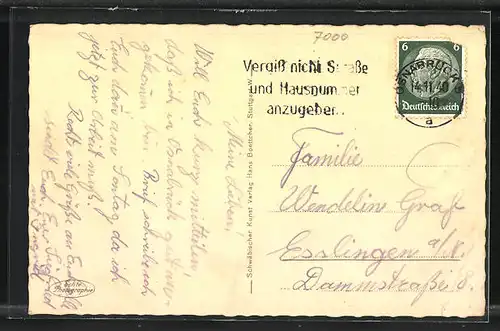 7000
Vergiß nicht Straße
und Hausnummer
anzugeben.
OSNABRÜCK
14.11.40
a
6 6
Deutsches Reich
Familie
Wendelin Graf
Esslingen a/N.
Dammstraße 8.
Schwäbischer Kunst Verlag Hans Boettcher, Stuttgart
Meine Lieben,
Will Euch kurz mitteilen,
daß ich in Osnabrück gut
bin. Brief schreibe ich
Euch dann am Sontag, da ich
jetzt zur Arbeit muß.
Recht viele Grüße an Euch alle
sendet Euch Euer
Echte
Photographie